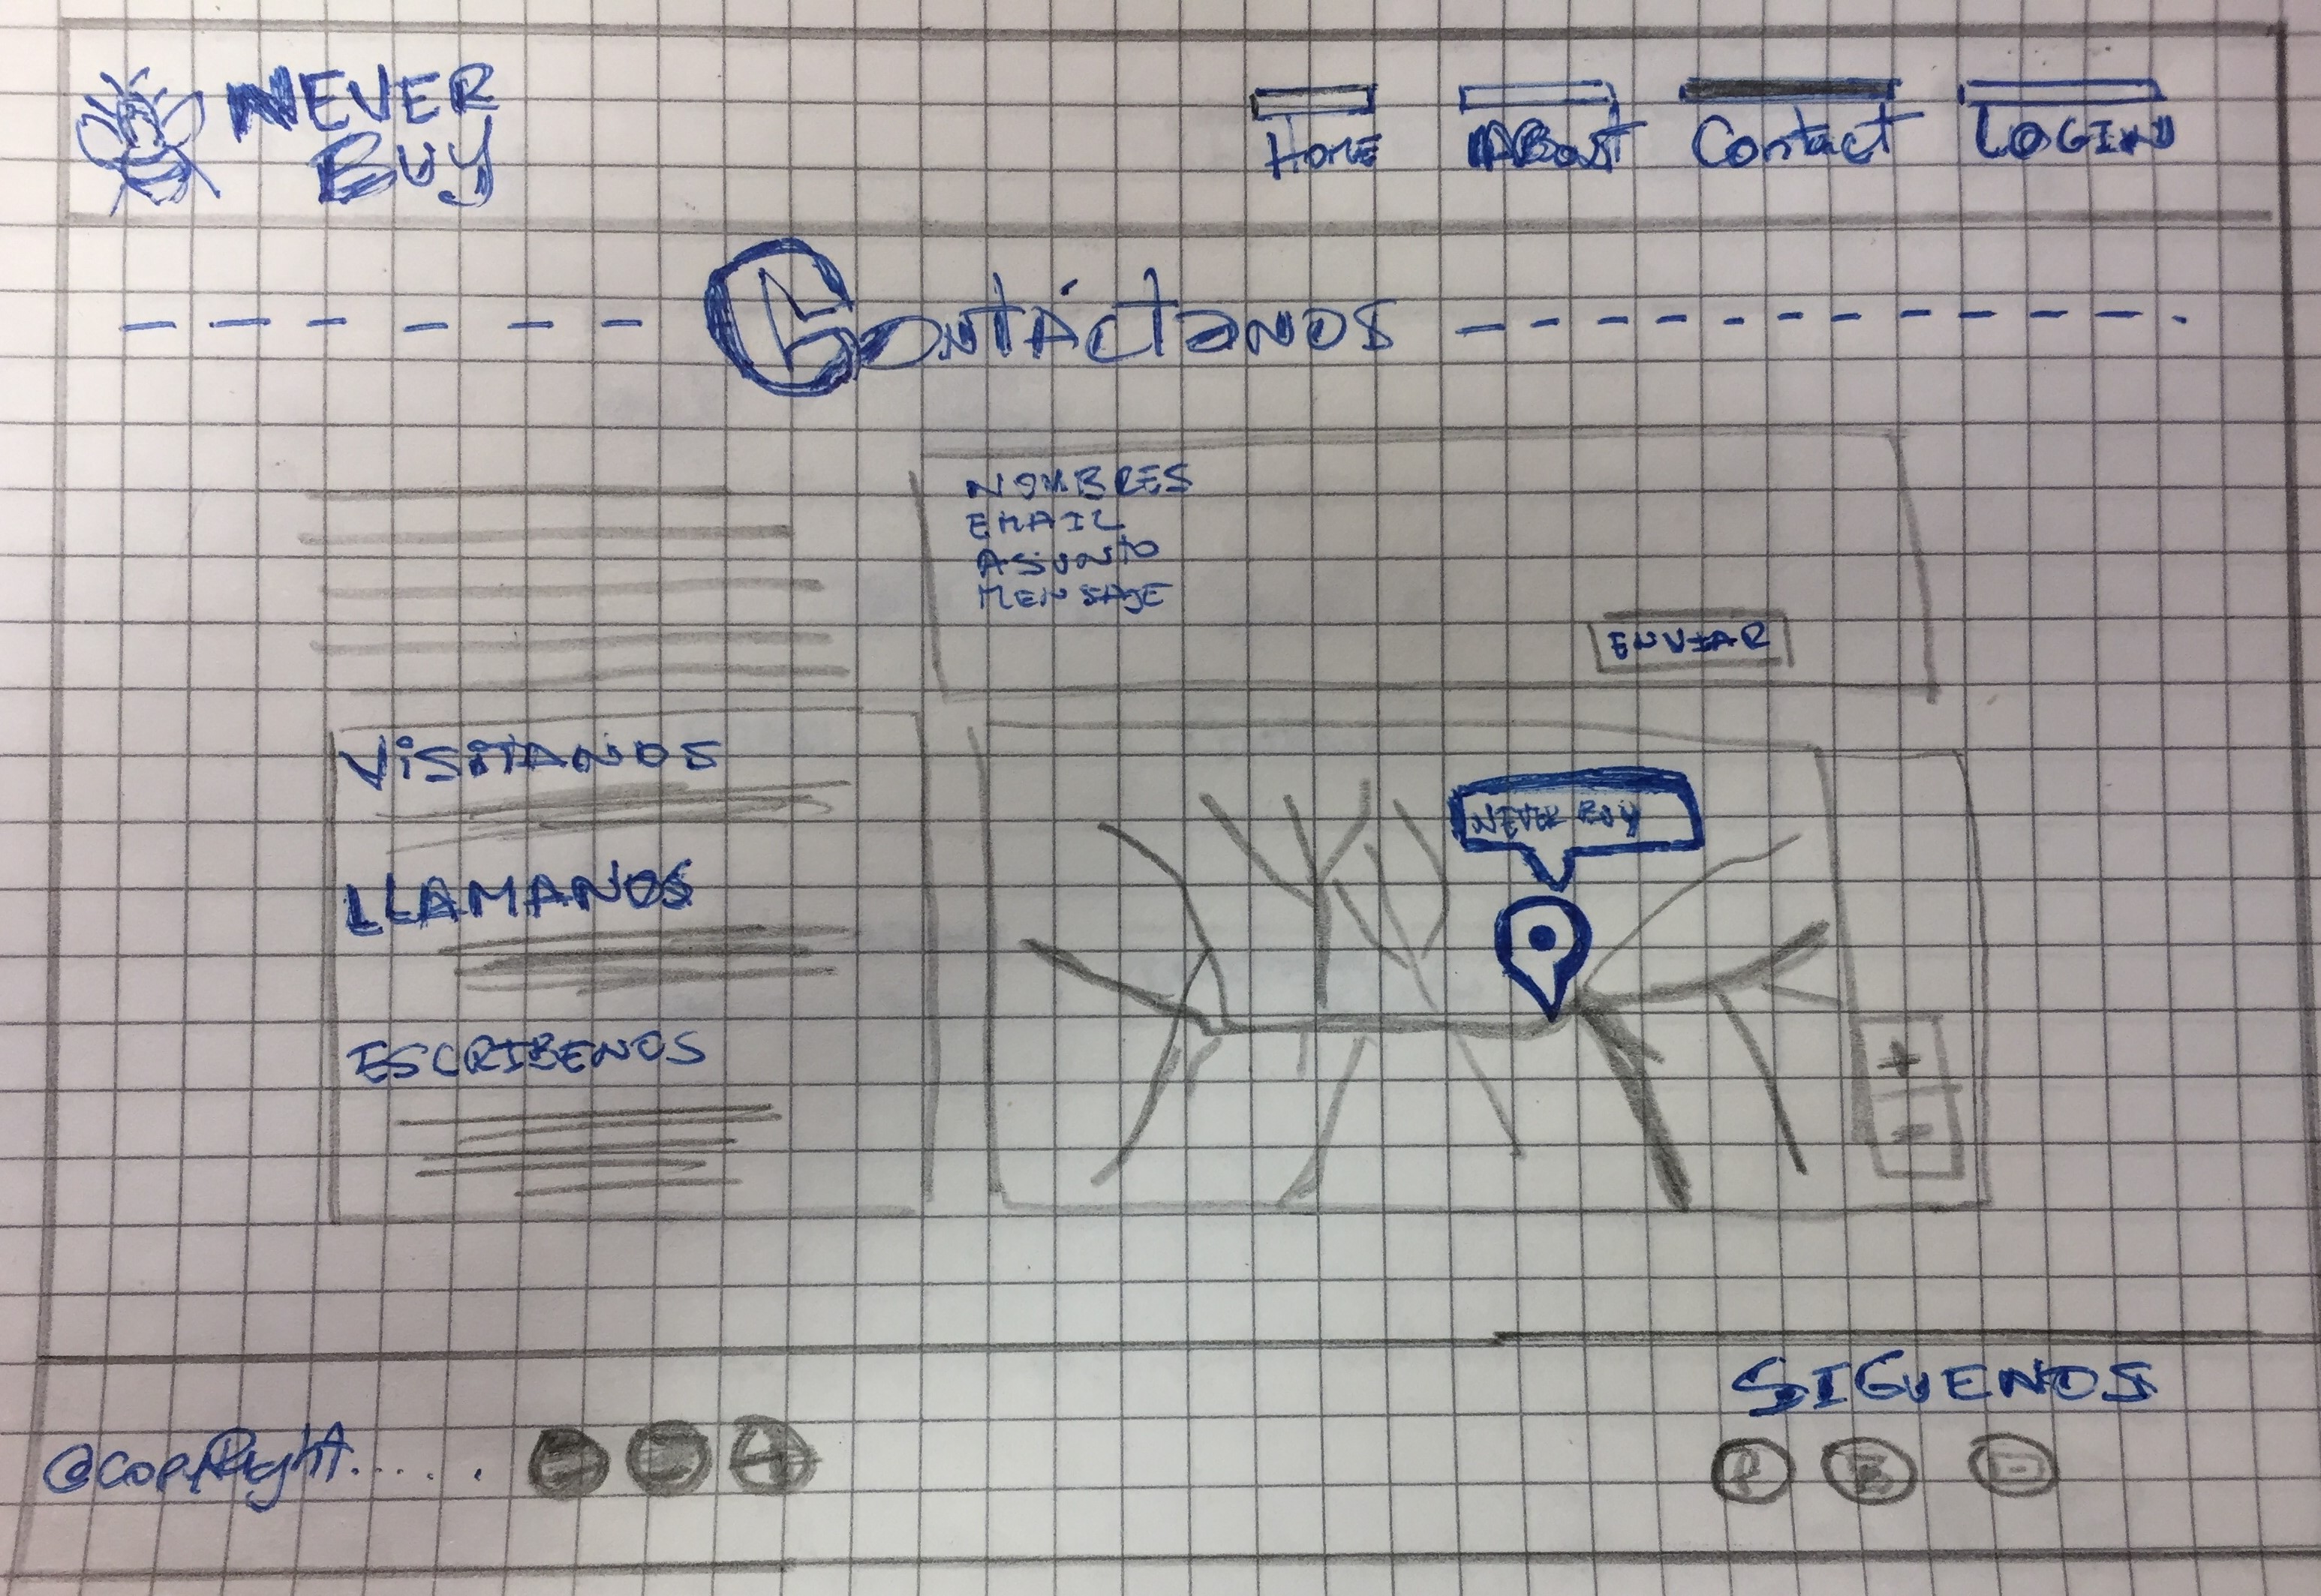 NEVER
BUY
HOME
ABOUT
Contact
LOGIN
Contáctanos
NOMBRES
EMAIL
ASUNTO
MENSAJE
ENVIAR
VISITANOS
LLAMANOS
ESCRIBENOS
NEVER BUY
+
-
SIGUENOS
@CopyRight.....